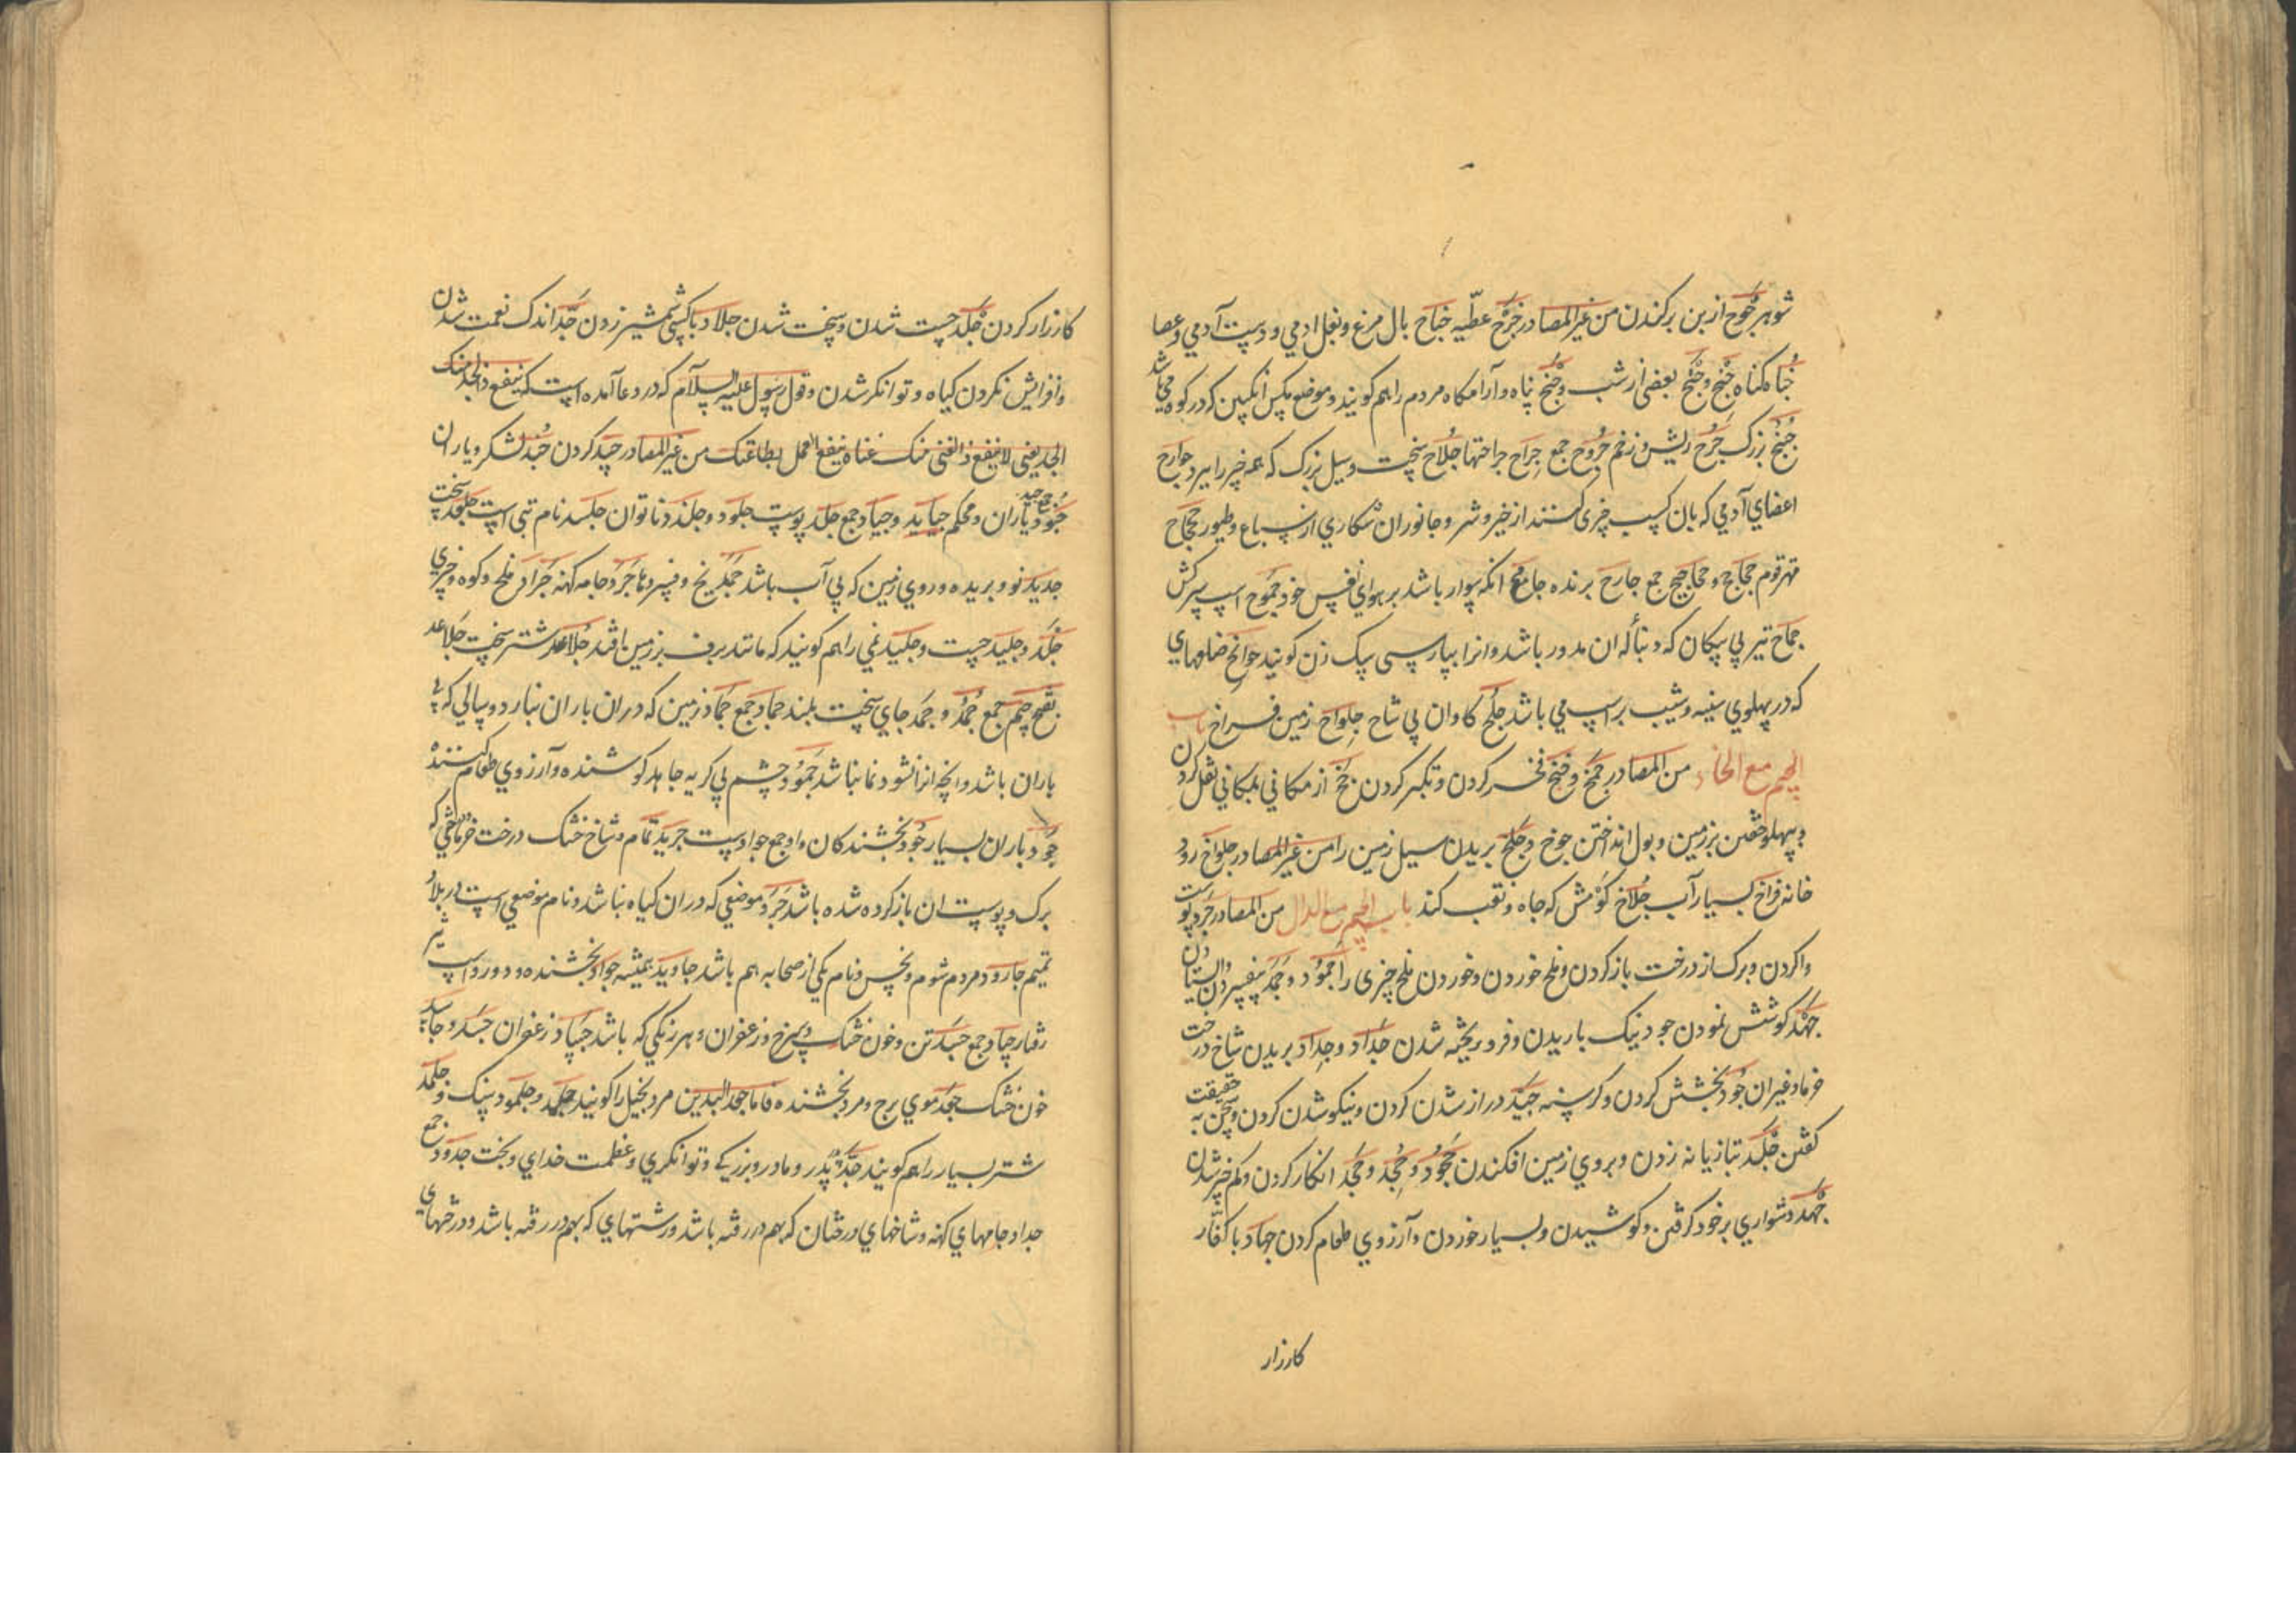 شوهر جَوح از بن برکندن من غیر المصادر جَزح عطیّه جناح بال مرغ و بغل ادمی و دست آدمی و عصا
جُناه کناه جَنح و جنح بعضی از شب و جُنح پناه و آرامکاه مردم را هم کویند و موضع مکس انکبین که در کوه می باشد
بزرک جُرح ریش و زخم جروح جمع جِراح جراحتها جُلاح سخت و سیل بزرک که همه چیز را ببرد جوارح
اعضای آدمی که بان کسب چیزی کنند از خیر و شر و جانوران شکاری از سباع و طیور جحجاح
مهتر قوم حجاجح و حجاجیح جمع جارح برنده جامح انکه سوار باشد بر هوای نفس خود جموح اسپ سرکش
جماح تیر بی پیکان که دنبأله ان مدور باشد و انرا بپارسی پیک زن کویند جوانح ضلوعهای
که در پهلوی سینه و شیب براسپ می باشد جلح کاوان بی شاخ جلواح زمین فراخ باب
الجیم مع الخاء من المصادر جمخ و جفخ فخر کردن و تکبر کردن جخ از مکانی بمکانی نقل کردن
و بپهلو خفتن بر زمین و بول انداختن جوخ و جلخ بریدن سیل زمین را من غیر المصادر جلواخ رود
خانه فراخ بسیار آب جُلاخ کوّمش که چاه و نقب کند باب الجیم مع الدال من المصادر جرد پوست
واکردن و برک از درخت باز کردن و ملخ خوردن و خوردن ملخ چیزی را جمود و جمد بیفسردن و ایستادن
جهد کوشش نمودن جود نیک باریدن و فرو ریخته شدن جَداد و جِداد بریدن شاخ درخت
خرما و غیر ان جُود بخشش کردن و کرسنه جَید دراز شدن کردن و نیکو شدن کردن و سخن به حقیقت
کفتن جلد تازیانه زدن و بروی زمین افکندن جحود و جُحد و جحد انکار کردن و کم خیر شدن
جهد دشواری بر خود کرفتن و کوشیدن و بسیار خوردن و آرزوی طعام کردن جهاد با کفّار
کارزار
کارزار کردن جَلد چست شدن و سخت شدن جلاد با کسی شمشیر زدن جَحد اندک نعمت شدن
و افزایش نکردن کیاه و توانکر شدن و قول رسول علیه السلام که در دعا آمده است که ینفع ذا لجد منک
الجد یعنی لا ینفع ذا الغنی منک غناه ینفع العمل بطاعتک من غیر المصادر جید کردن جُند لشکر و یاران
جنود یاران و محکم جیاید و جیاد جمع جلد پوست جلود و جلند ناتوان جلسد نام بتی است جلعد سخت
جدید نو و بریده و روی زمین که بی آب باشد جمد یخ و فسردها جرد جامه کهنه جراد ملخ و کوه و چیزی
جَلد و جلید چست و جلید نمی را هم کویند که مانند برف بر زمین افتد جُلاعد شتر سخت جَلاعد
بفتح جیم جمع جُمُد و جمد جای سخت بلند جماد جمع جَماد زمین که دران باران نبارد و سالی که بی
باران باشد و انچه انرا نشو و نما نباشد جَمود چشم بی کریه جاهد کوشنده و آرزوی طعام کننده
جود باران بسیار جود بخشندکان و اد جمع جواد ست جرید تمام و شاخ خشک درخت خرما شاخی که
برک و پوست ان باز کرده شده باشد جرد موضعی که دران کیاه نباشد و نام موضعی است در بلاد
تمیم جارود مردم شوم و نحس و نام یکی از صحابه هم باشد جاوید همیشه جواد بخشنده و دو رو اسپ تیز
رفتار جیاد جمع جسد تن و خون خشک و سرخ و زعفران و هر رنکی که باشد جساد زعفران جسد و جاسد
خون خشک جعد موی رج و مرد بخشنده فاما جعد الیدین مرد بخیل را کویند جلمد و جلمود سنک و جلمد
شتر بسیار را هم کویند جَدّ پدر پدر و مادر و بزرکی و توانکری و عظمت خدای و بخت جدود جمع
جداد جامهای کهنه و شاخهای درختان که بهم در رفته باشد و رشتهای که بهم در رفته باشد و درختهای